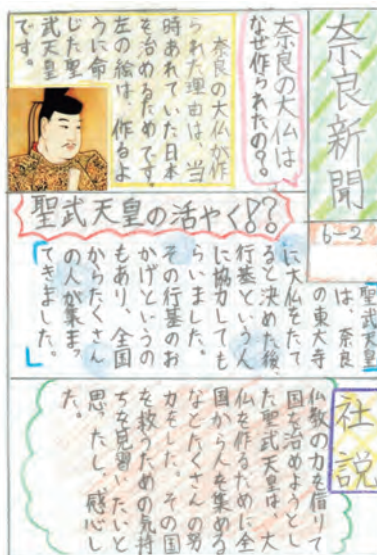 奈良新聞
6-2
奈良の大仏は
なぜ作られたの?
奈良の大仏が作
られた理由は、当
時あれていた日本
を治めるためです。
左の絵は、作るよ
うに命
じた聖
武天皇
です。
聖武天皇の活やく!??
聖武天皇
は、奈良
の東大寺
に大仏をたて
ると決めた後、
行基という人
に協力しても
らいました。
その行基のお
かげというの
もあり、全国
からたくさん
の人が集まっ
てきました。
社説
仏教の力を借りて
国を治めようとし
た聖武天皇は、大
仏を作るために全
国から人を集める
などたくさんの努
力をした。その国
を救うための気持
ちを見習いたいと
思ったし、感心し
た。